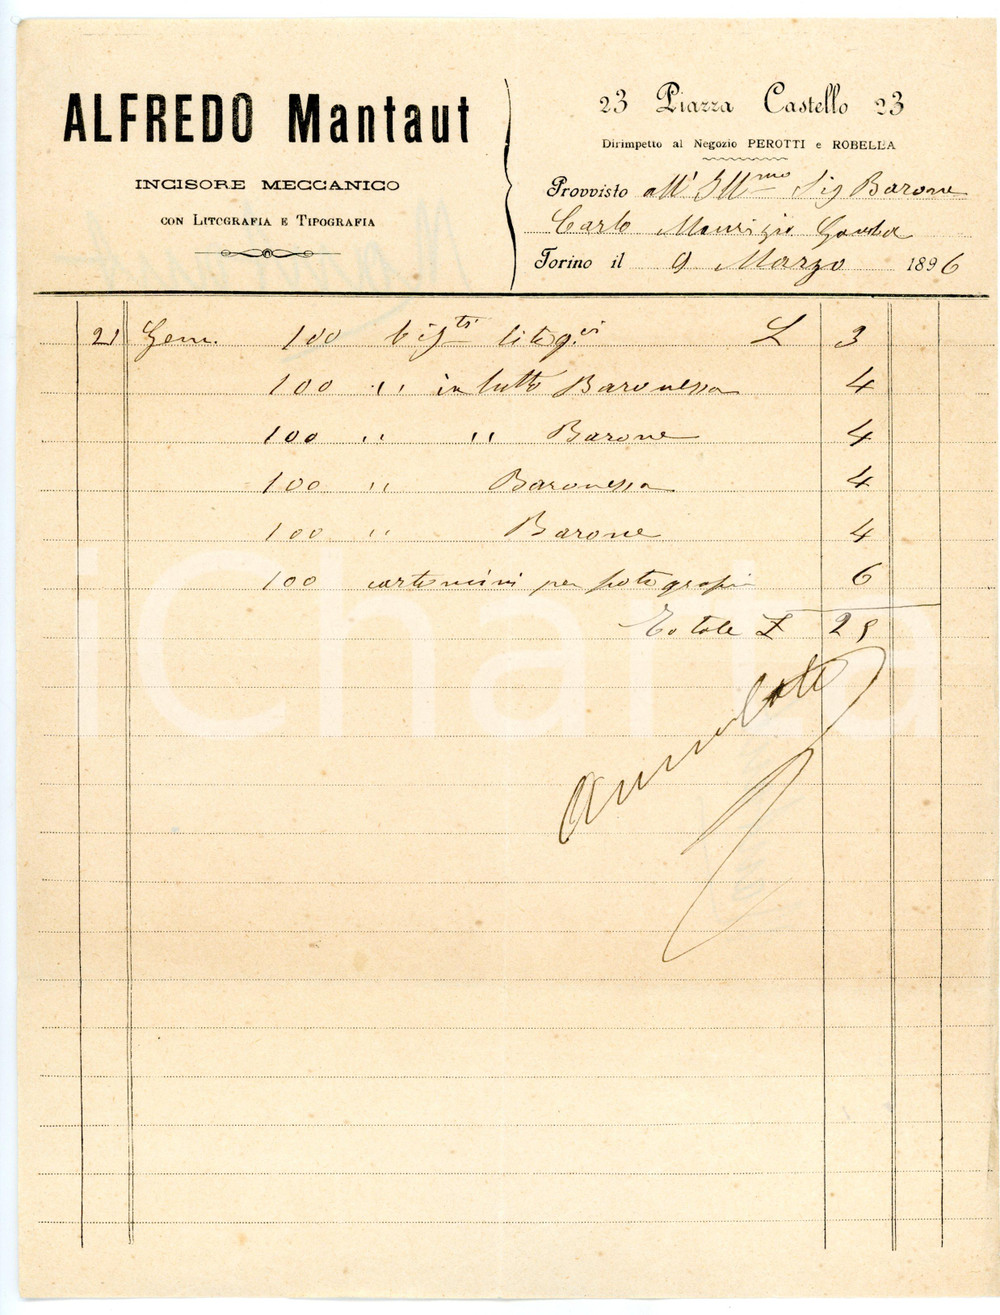 ALFREDO Mantaut
INCISORE MECCANICO
CON LITOGRAFIA E TIPOGRAFIA
23 Piazza Castello 23
Dirimpetto al Negozio PEROTTI e ROBELLA
Provvisto all' Ill.mo Sig Barone
Carlo Maurizio Gamba
Torino il 9 Marzo 1896
21 Genn. 100 bigtti litogci L 3
100 '' in lutto Baronessa 4
100 '' '' Barone 4
100 '' Baronessa 4
100 '' Barone 4
100 cartoncini per fotografie 6
Totale L 25
annullato
iCharta